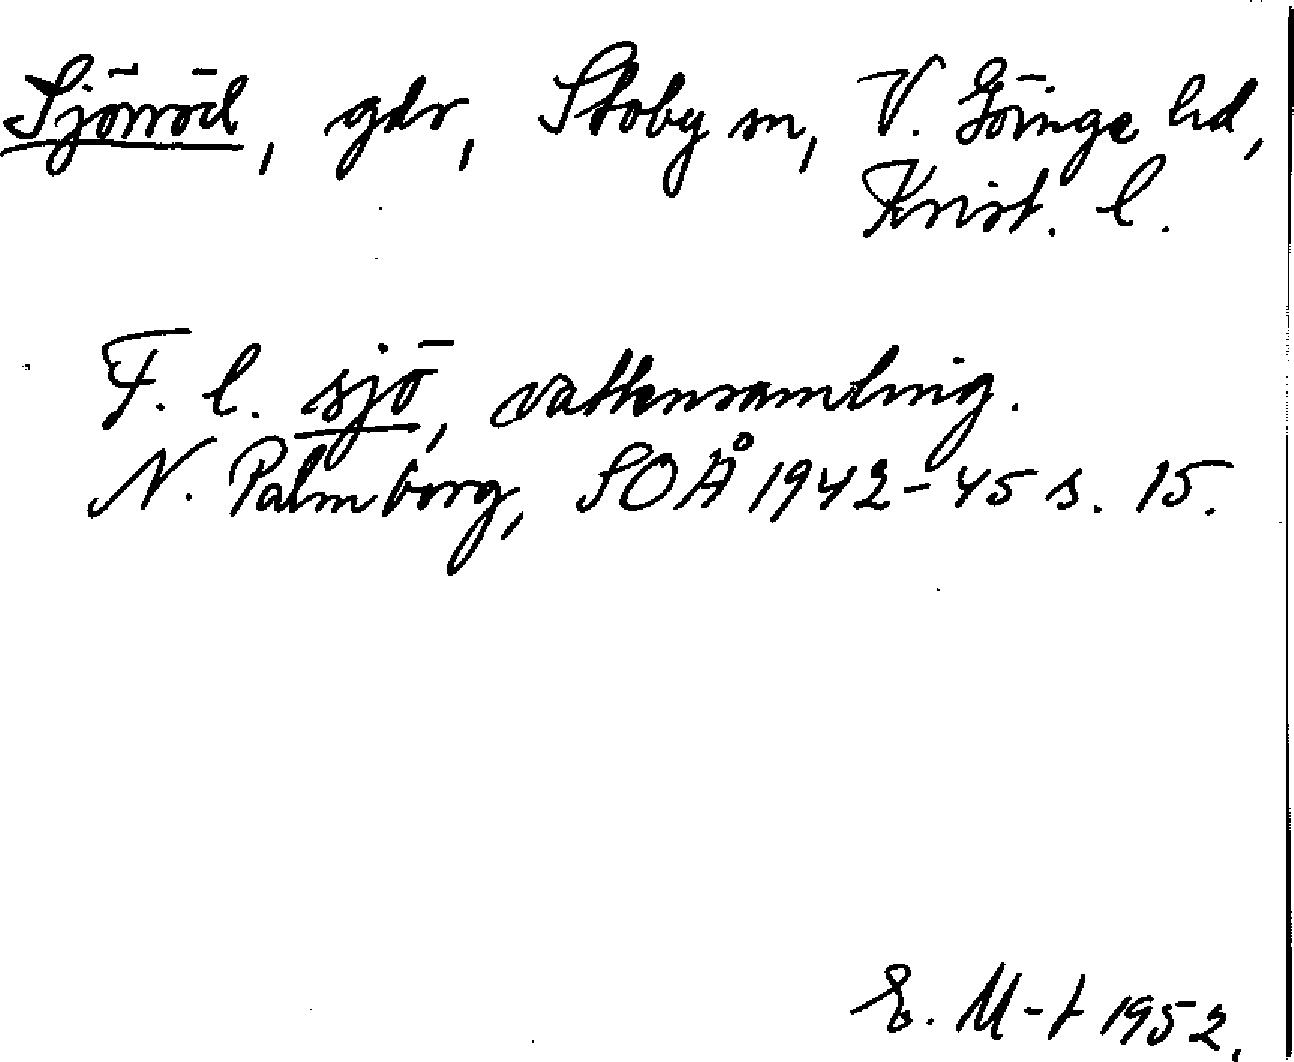 Sjörröd, gdr, Stoby sn, V. Göinge hd,
Krist. l.
F. l. sjö, vattensamling.
N. Palmborg, SOÅ 1942-45 s. 15.
E. M-t 1952.